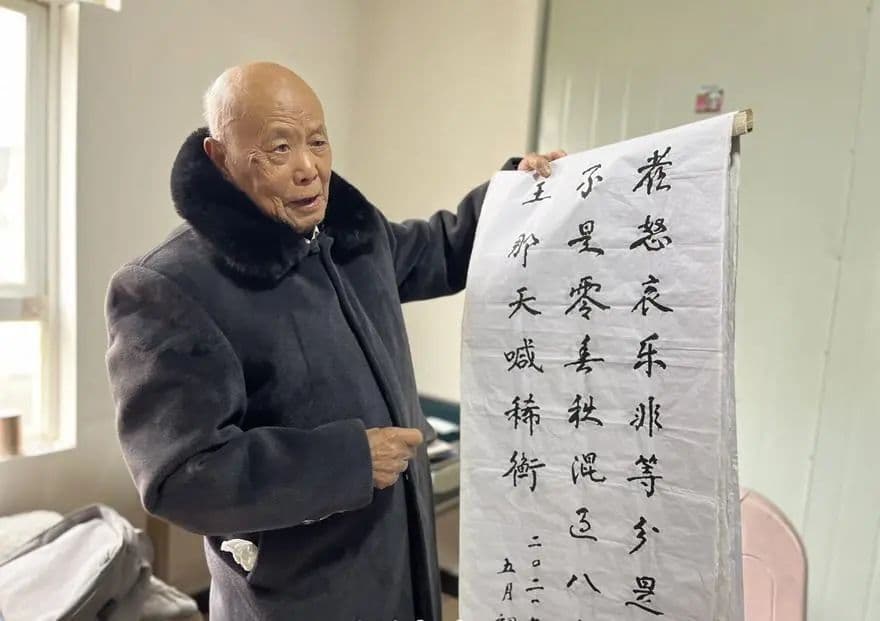 喜怒哀乐非等分
不是零春秋混过八
王那天喊稀衡
二〇二
五月初